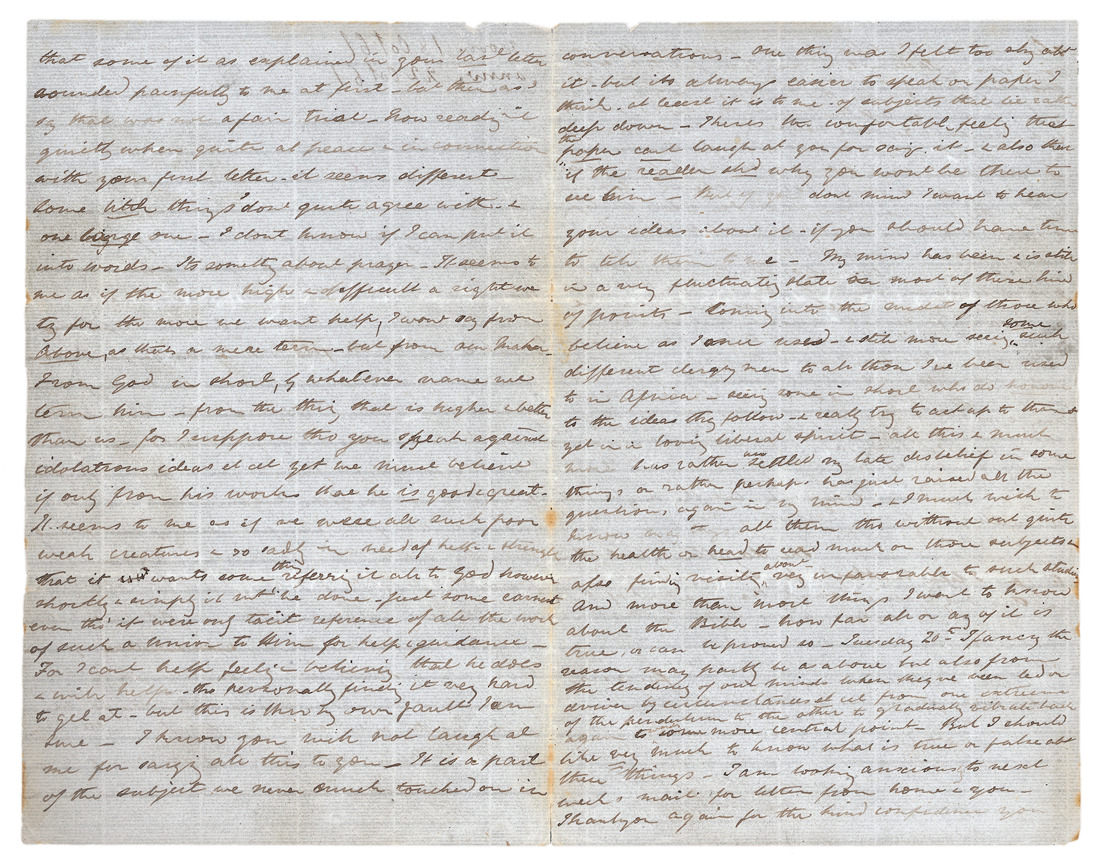 that some of it as explained in your last letter
sounded painfully to me at first - but then as I
say that was not a fair trial - Now reading it
quietly when quite at peace & in connection
with your first letter - it seems different
some little things I don't quite agree with - &
one large one - I don't know if I can put it
into words - Its somethg about prayer - It seems to
me as if the more high & difficult a right we
try for the more we want help, I wont say from
above, as thats a mere term - but from our Maker -
From God in short, by whatever name we
term him - from the thing that is higher & better
than us - for I suppose tho you speak against
idolatrous ideas et cet yet we must believe
if only from his works that he is good & great -
It seems to me as if we were all such poor
weak creatures & so sadly in need of help & strength
that it wants some thing referring it all to God however
shortly & simply it be done - just some earnest
even tho' it were only tacit reference of all the work
of such a union to Him for help & guidance -
For I cant help feelig & believing that he does
& will help - tho personally findg it very hard
to get at - but this is thro my own fault I am
sure - I know you will not laugh at
me for sayig all this to you - It is a part
of the subject we never much touched on in
conversations - one thing was I felt too shy abt
it - but its always easier to speak on paper I
think - at least it is to me - of subjects that lie rather
deep down - Theres the comfortable feelig that
the paper cant laugh at you for sayg it - & also then
if the reader shd why you wont be there to
see him - But if you dont mind I want to hear
your ideas about it - if you should have time
to tell them to me - My mind has been & is still
in a very fluctuating state on most of these kind
of points - Coming into the midst of those who
believe as I once used - & still more seeig some such
different clergymen to all those I've been used
to in Africa - seeig some in short who do honour
to the ideas they follow - & really try to act up to them &
yet in a loving liberal spirit - all this & much
more has rather unsettled my late disbelief in some
things or rather perhaps has just raised all the
questions again in my mind - & I much wish to
know all them tho without out quite
the health or head to read much on those subjects &
also findg visitg about very unfavorable to such studies
And more than most things I want to know
about the Bible - how far all or any of it is
true, or can be proved so - Tuesday 20th I fancy the
reason may partly be a above but also from
the tendency of our minds when theyve been led or
driven by circumstances et cet from one extreme
of the pendulum to the other to gradually vibrate back
again to some more central point - But I should
like very much to know what is true or false abt
these things - I am looking anxiously to next
week's mail for letter from home & you -
Thankyou again for the kind confidence you